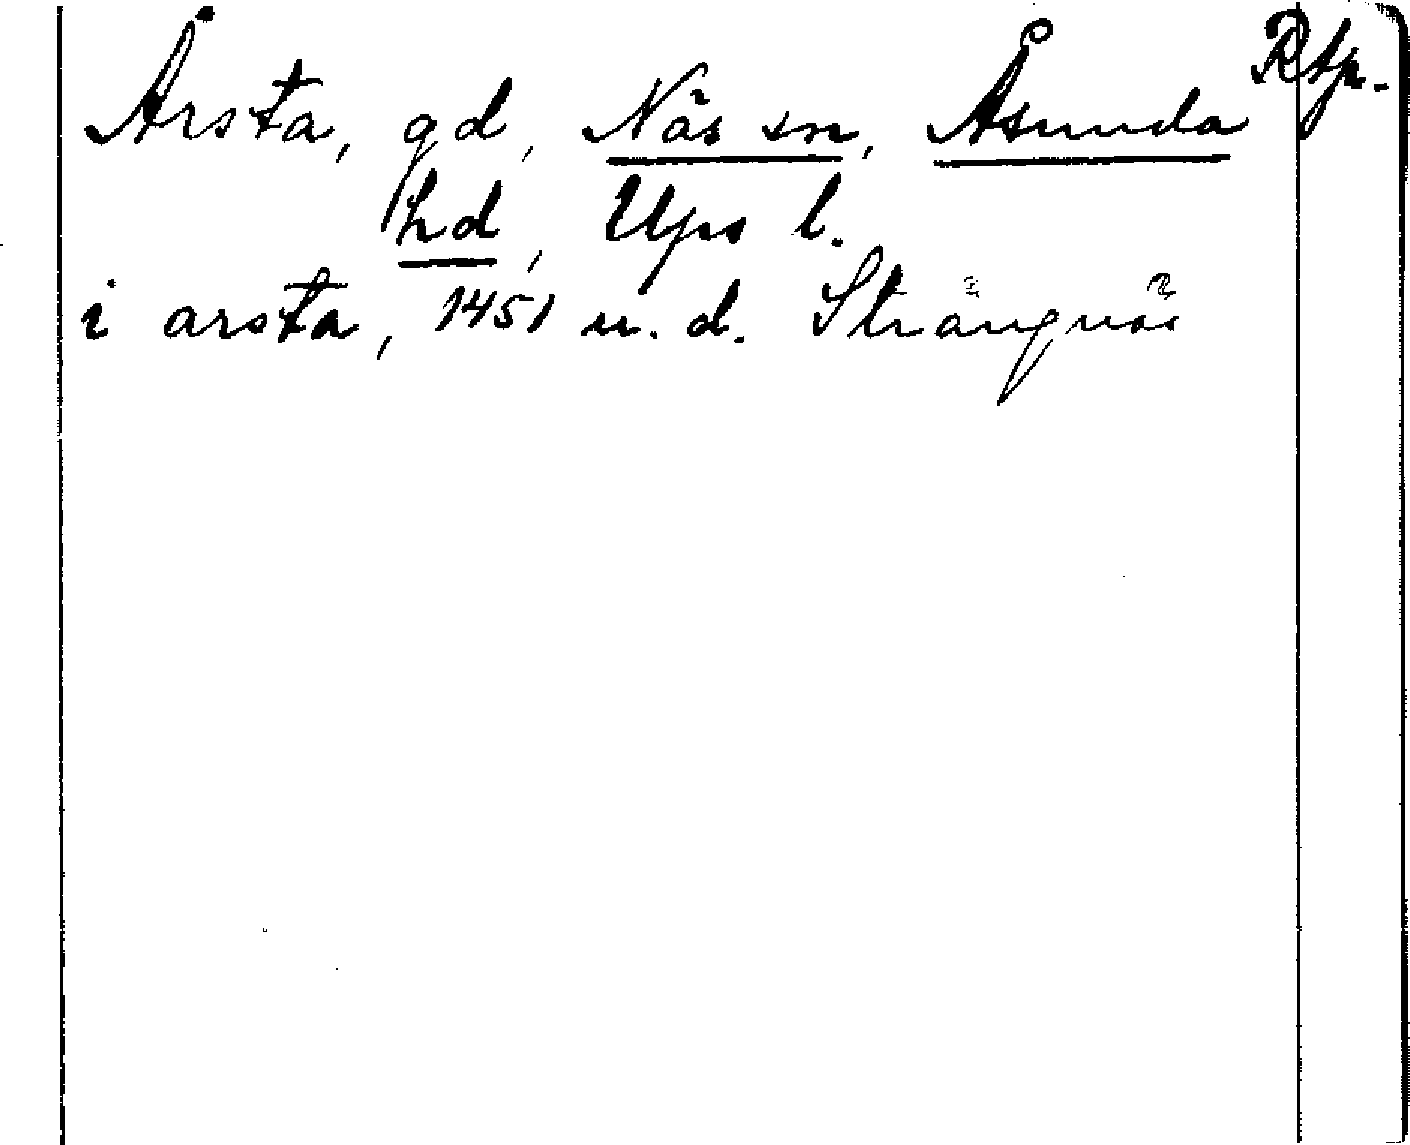 Årsta, gd, Näs sn, Åsunda Rtp.
hd, Ups l.
i arsta, 1451 u. d. Strängnäs